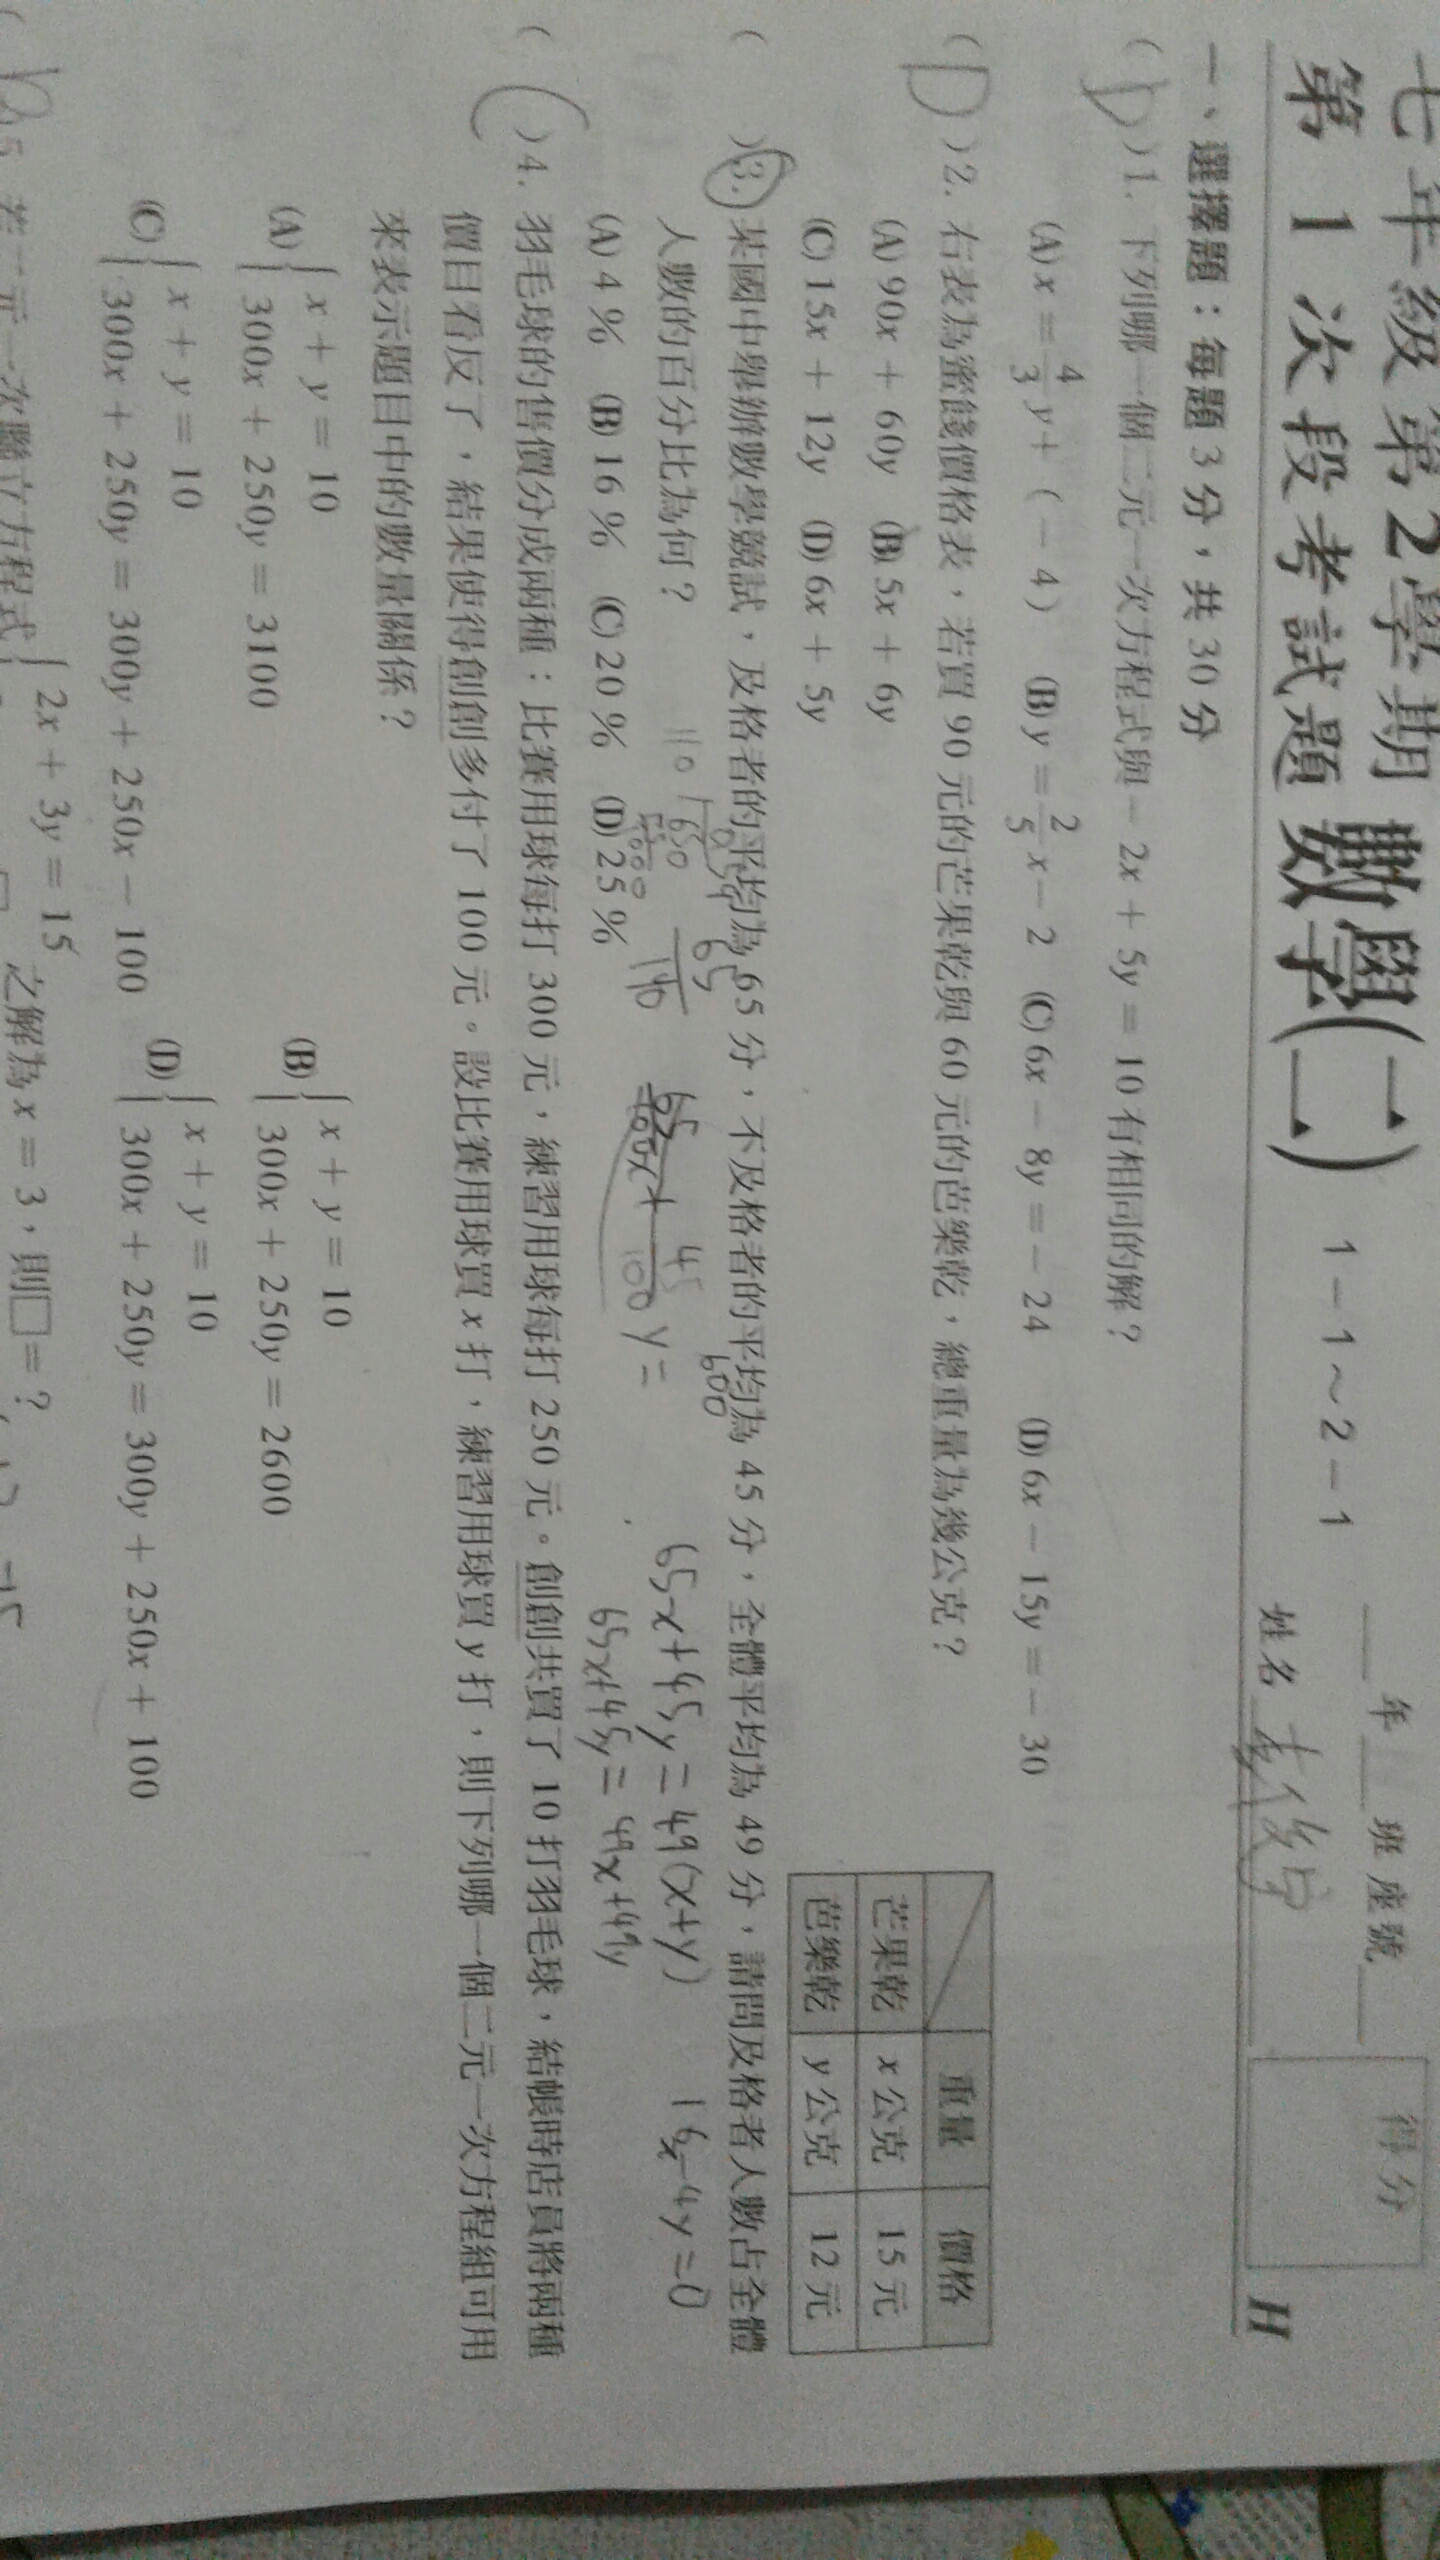 七年級第2學期
第1次段考試題 數學(二) 1-1~2-1
年 班 座號
姓名
得分
H
一、選擇題:每題3分,共30分
(D)1. 下列哪一個二元一次方程式與-2x+5y=10有相同的解?
(A) x=4/3y+(-4) (B) y=2/5x-2 (C) 6x-8y=-24 (D) 6x-15y=-30
(D)2. 右表為蜜餞價格表,若買90元的芒果乾與60元的芭樂乾,總重量為幾公克?
(A) 90x+60y (B) 5x+6y
(C) 15x+12y (D) 6x+5y
重量 價格
芒果乾 x公克 15元
芭樂乾 y公克 12元
( )3. 某國中舉辦數學競試,及格者的平均為65分,不及格者的平均為45分,全體平均為49分,請問及格者人數占全體
人數的百分比為何?
(A) 4% (B) 16% (C) 20% (D) 25%
65x+45y=49(x+y)
65x+45y=49x+49y
16x-4y=0
( )4. 羽毛球的售價分成兩種:比賽用球每打300元,練習用球每打250元。創創共買了10打羽毛球,結帳時店員將兩種
價目看反了,結果使得創創多付了100元。設比賽用球買x打,練習用球買y打,則下列哪一個二元一次方程組可用
來表示題目中的數量關係?
(A) { x+y=10
300x+250y=3100
(B) { x+y=10
300x+250y=2600
(C) { x+y=10
300x+250y=300y+250x-100
(D) { x+y=10
300x+250y=300y+250x+100
5. 若二元一次聯立方程式{ 2x+3y=15
之解為x=3,則□=?